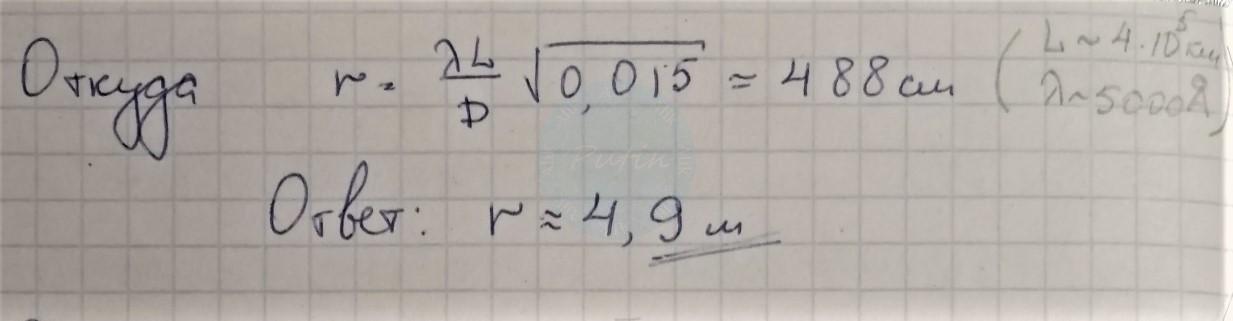 Откуда r = λL/D √0,015 ≈ 488 см (L ~ 4·10⁵ км
λ ~ 5000Å)
Pufin
Ответ: r ≈ 4,9 м